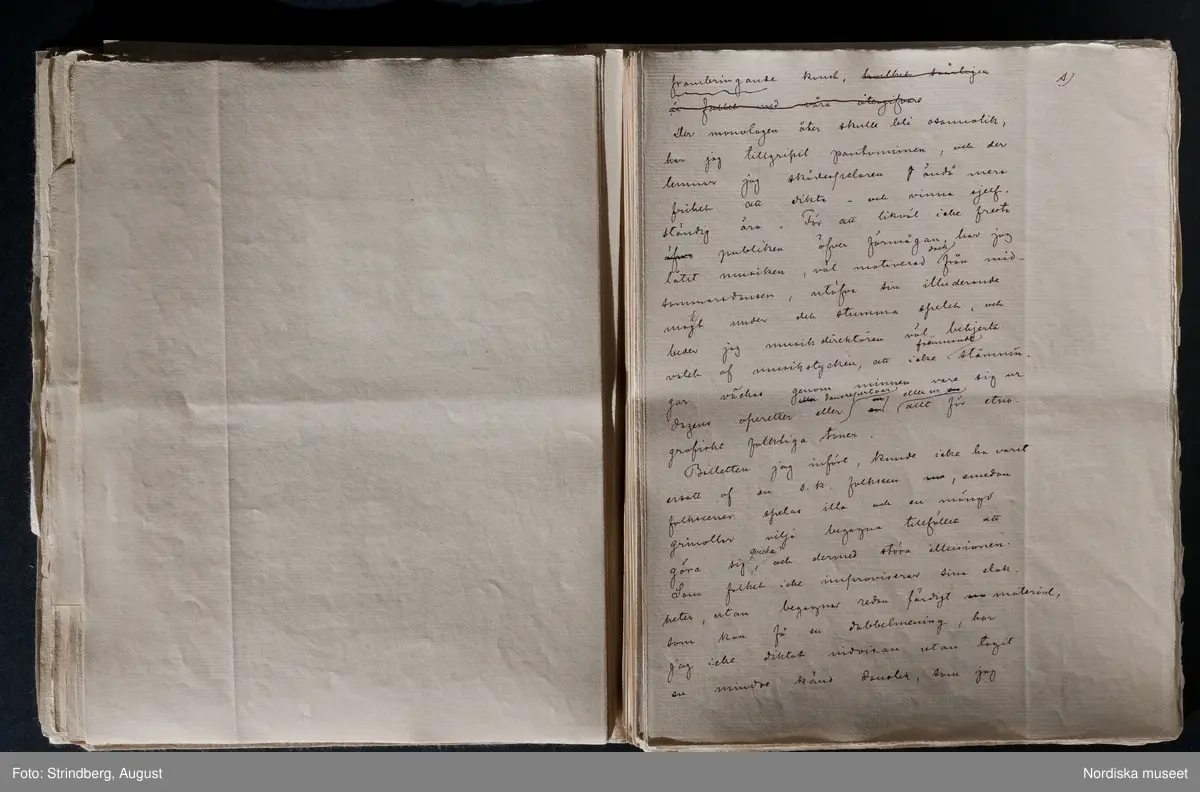 frambringande konst, hvilket närligen s)
är fallet med våra återgifvare
Der monologen åter skulle bli osannolik,
har jag tillgripit pantomimen, och der
lemnar jag skådespelaren ändå mera
frihet att dikta – och vinna sjelf-
ständig ära. För att likväl icke fresta
öfver publiken öfver förmågan har jag
låtit musiken, väl motiverad dock från mid-
sommardansen, utöfva sin illuderande
magt under det stumma spelet, och
beder jag musikdirektören väl behjerta
valet af musikstycken, att icke främmande stämnin-
gar väckas genom minnen vare sig ur
dagens operetter eller eller dansrepertoar eller ur allt för etno-
grafiskt folkliga toner.
Balletten jag infört, kunde icke ha varit
ersatt af en s.k. folkscen, emedan
folkscener spelas illa och en mängd
grinollar vilja begagna tillfället att
göra sig qvicka, och dermed störa illusionen.
Som folket icke improviserar sina elak-
heter, utan begagnar redan färdigt material,
som kan få en dubbelmening, har
jag icke diktat nidvisan utan tagit
en mindre känd danslek, som jag
Foto: Strindberg, August
Nordiska museet